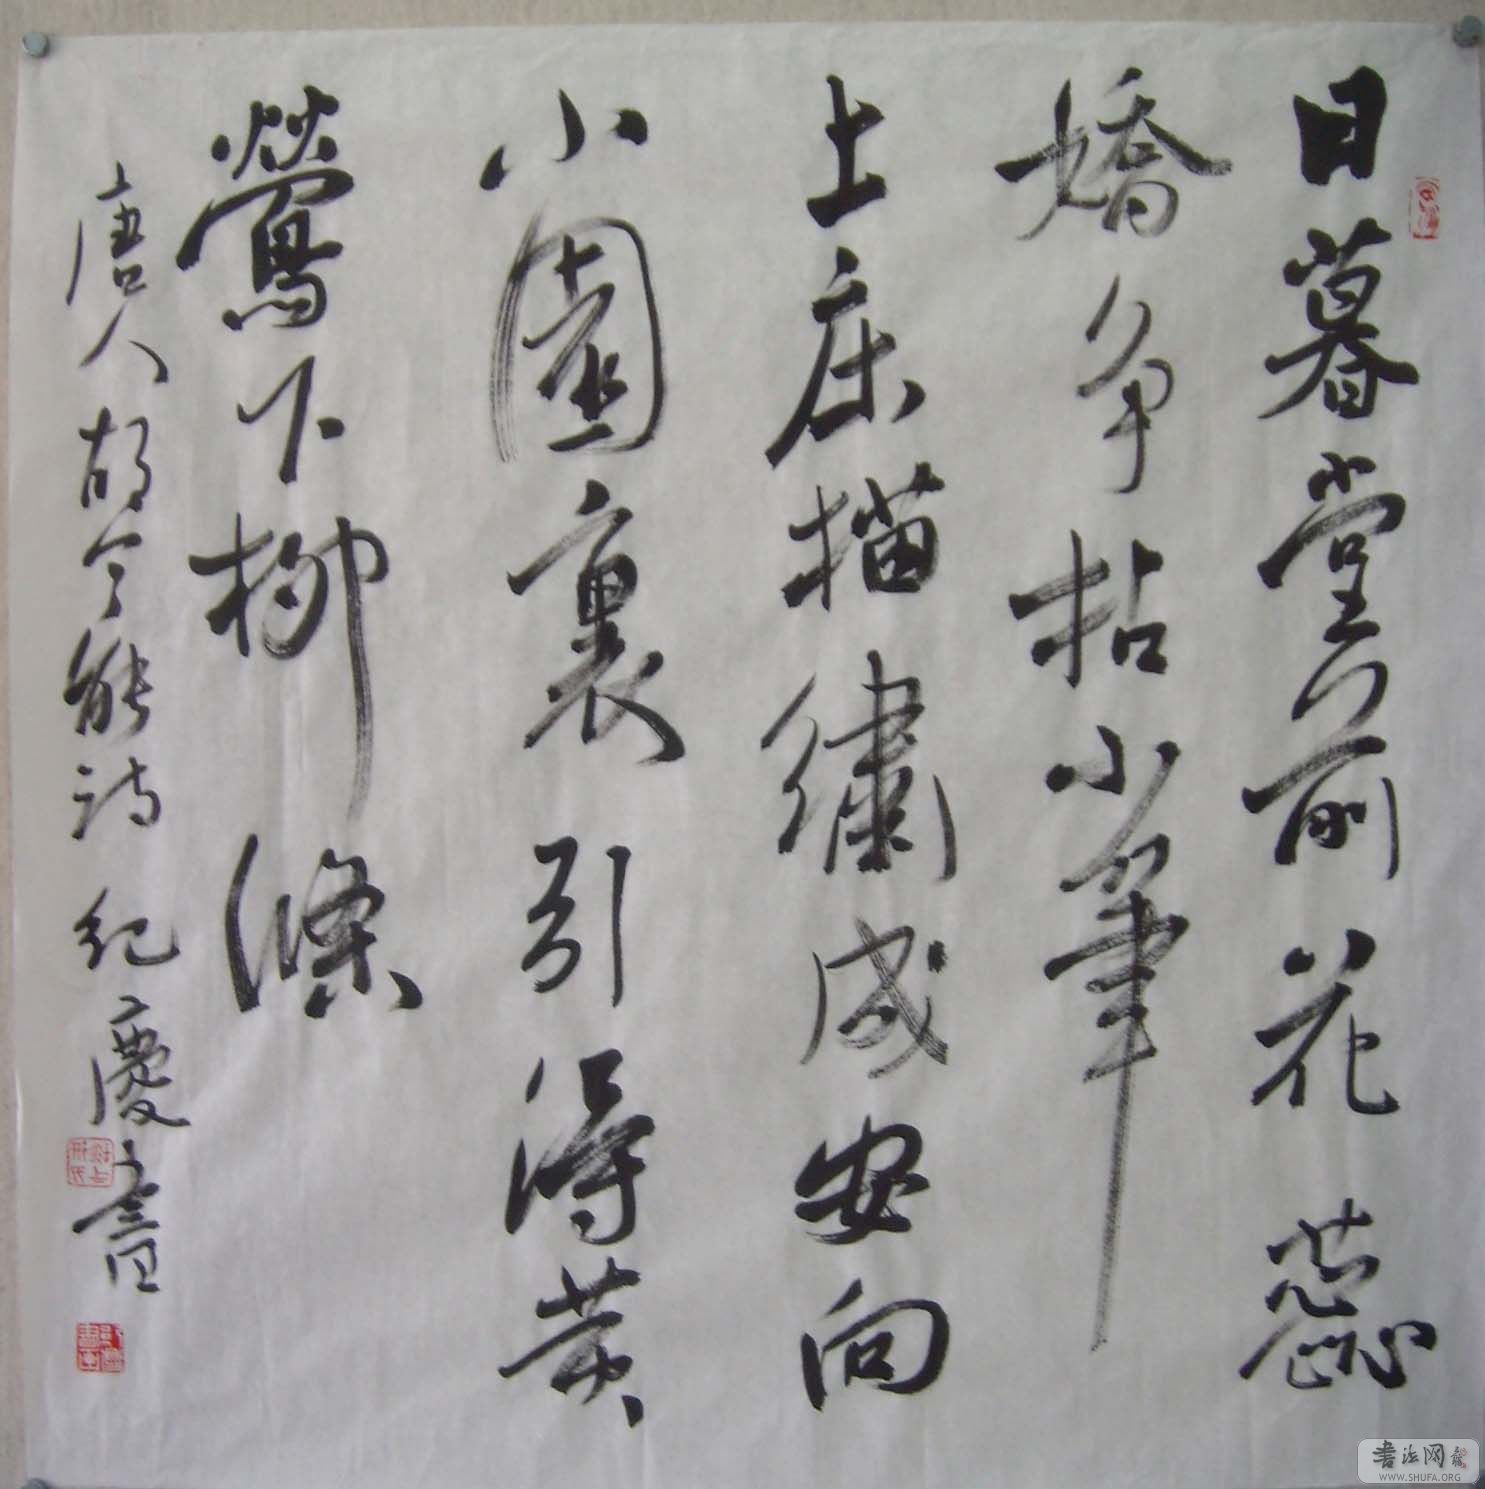 日暮堂前花蕊
嬌争拈小筆
上床描繡成安向
小園裏引得黄
鶯下柳條
唐人胡令能詩 紀慶書
書法网
WWW.SHUFA.ORG